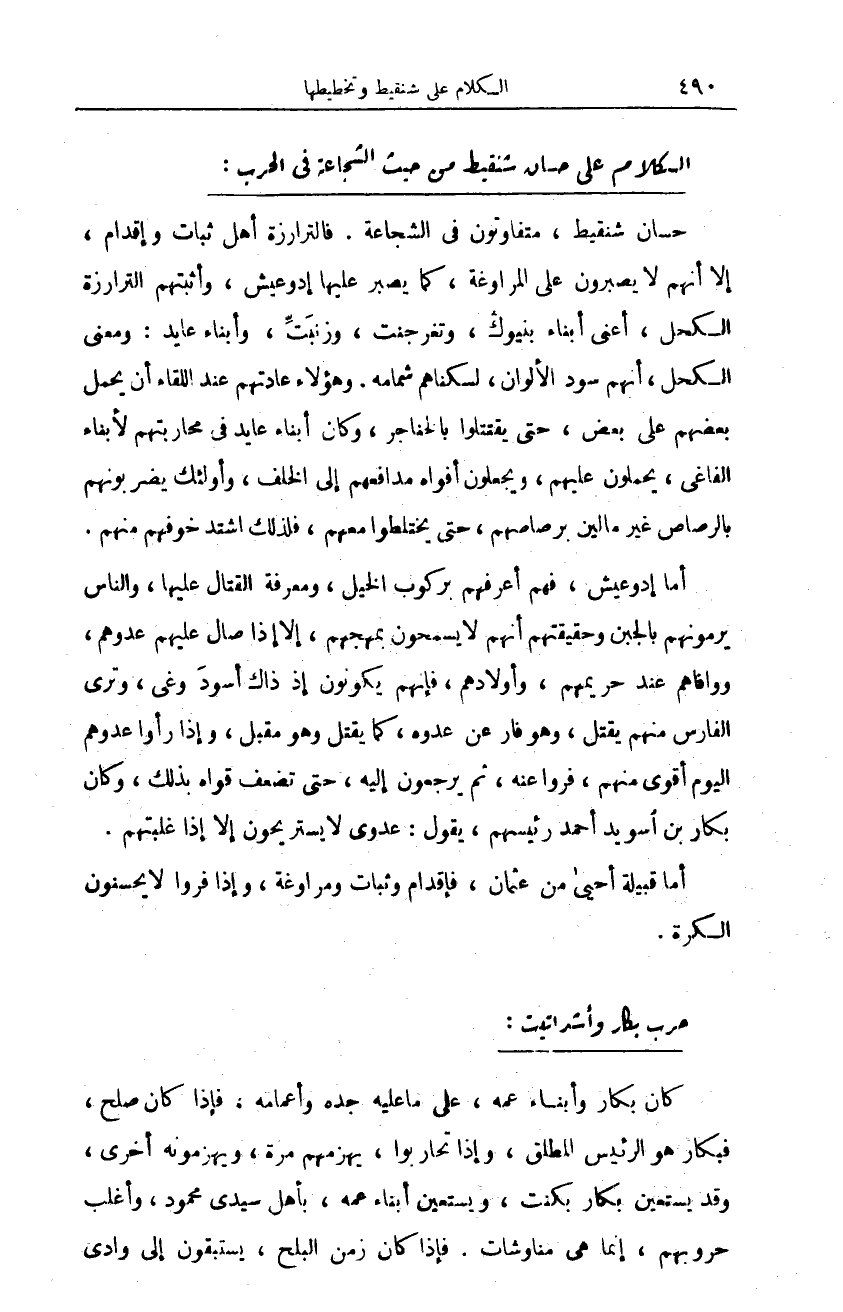 ٤٩٠ الكلام على شنقيط وتخطيطها
الكلام على حسان شنقيط من حيث الشجاعة فى الحرب :
حسان شنقيط ، متفاوتون فى الشجاعة . فالترارزة أهل ثبات وإقدام ،
إلا أنهم لا يصبرون على المراوغة ، كما يصبر عليها إدوعيش ، وأثبتهم الترارزة
الكحل ، أعنى أبناء بنيوك ، وتغرجنت ، وزنبَتِّ ، وأبناء عايد : ومعنى
الكحل ، أنهم سود الألوان ، لسكناهم شمامه . وهؤلاء عادتهم عند اللقاء أن يحمل
بعضهم على بعض ، حتى يقتتلوا بالخناجر ، وكان أبناء عايد فى محاربتهم لأبناء
الفاغى ، يحملون عليهم ، ويجعلون أفواه مدافعهم إلى الخلف ، وأولئك يضربونهم
بالرصاص غير مالين برصاصهم ، حتى يختلطوا معهم ، فلذلك اشتد خوفهم منهم .
أما إدوعيش ، فهم أعرفهم بركوب الخيل ، ومعرفة القتال عليها ، والناس
يرمونهم بالجبن وحقيقتهم أنهم لايسمحون بمهجهم ، إلاإذا صال عليهم عدوهم ،
ووافاهم عند حريمهم ، وأولادهم ، فإنهم يكونون إذ ذاك أسودَ وغى ، وترى
الفارس منهم يقتل ، وهو فار عن عدوه ، كما يقتل وهو مقبل ، وإذا رأوا عدوهم
اليوم أقوى منهم ، فروا عنه ، ثم يرجعون إليه ، حتى تضعف قواه بذلك ، وكان
بكار بن اُسويد أحمد رئيسهم ، يقول : عدوى لايستريحون إلا إذا غلبتهم .
أما قبيلة أحيىٰ من عثمان ، فإقدام وثبات ومراوغة ، وإذا فروا لايحسنون
الكرة .
حرب بكار وأشراتيت :
كان بكار وأبناء عمه ، على ماعليه جده وأعمامه . فإذا كان صلح ،
فبكار هو الرئيس المطلق ، وإذا تحاربوا ، يهزمهم مرة ، ويهزمونه أخرى ،
وقد يستعين بكار بكنت ، ويستعين أبناء عمه ، بأهل سيدى محمود ، وأغلب
حروبهم ، إنما هى مناوشات . فإذا كان زمن البلح ، يستبقون إلى وادى